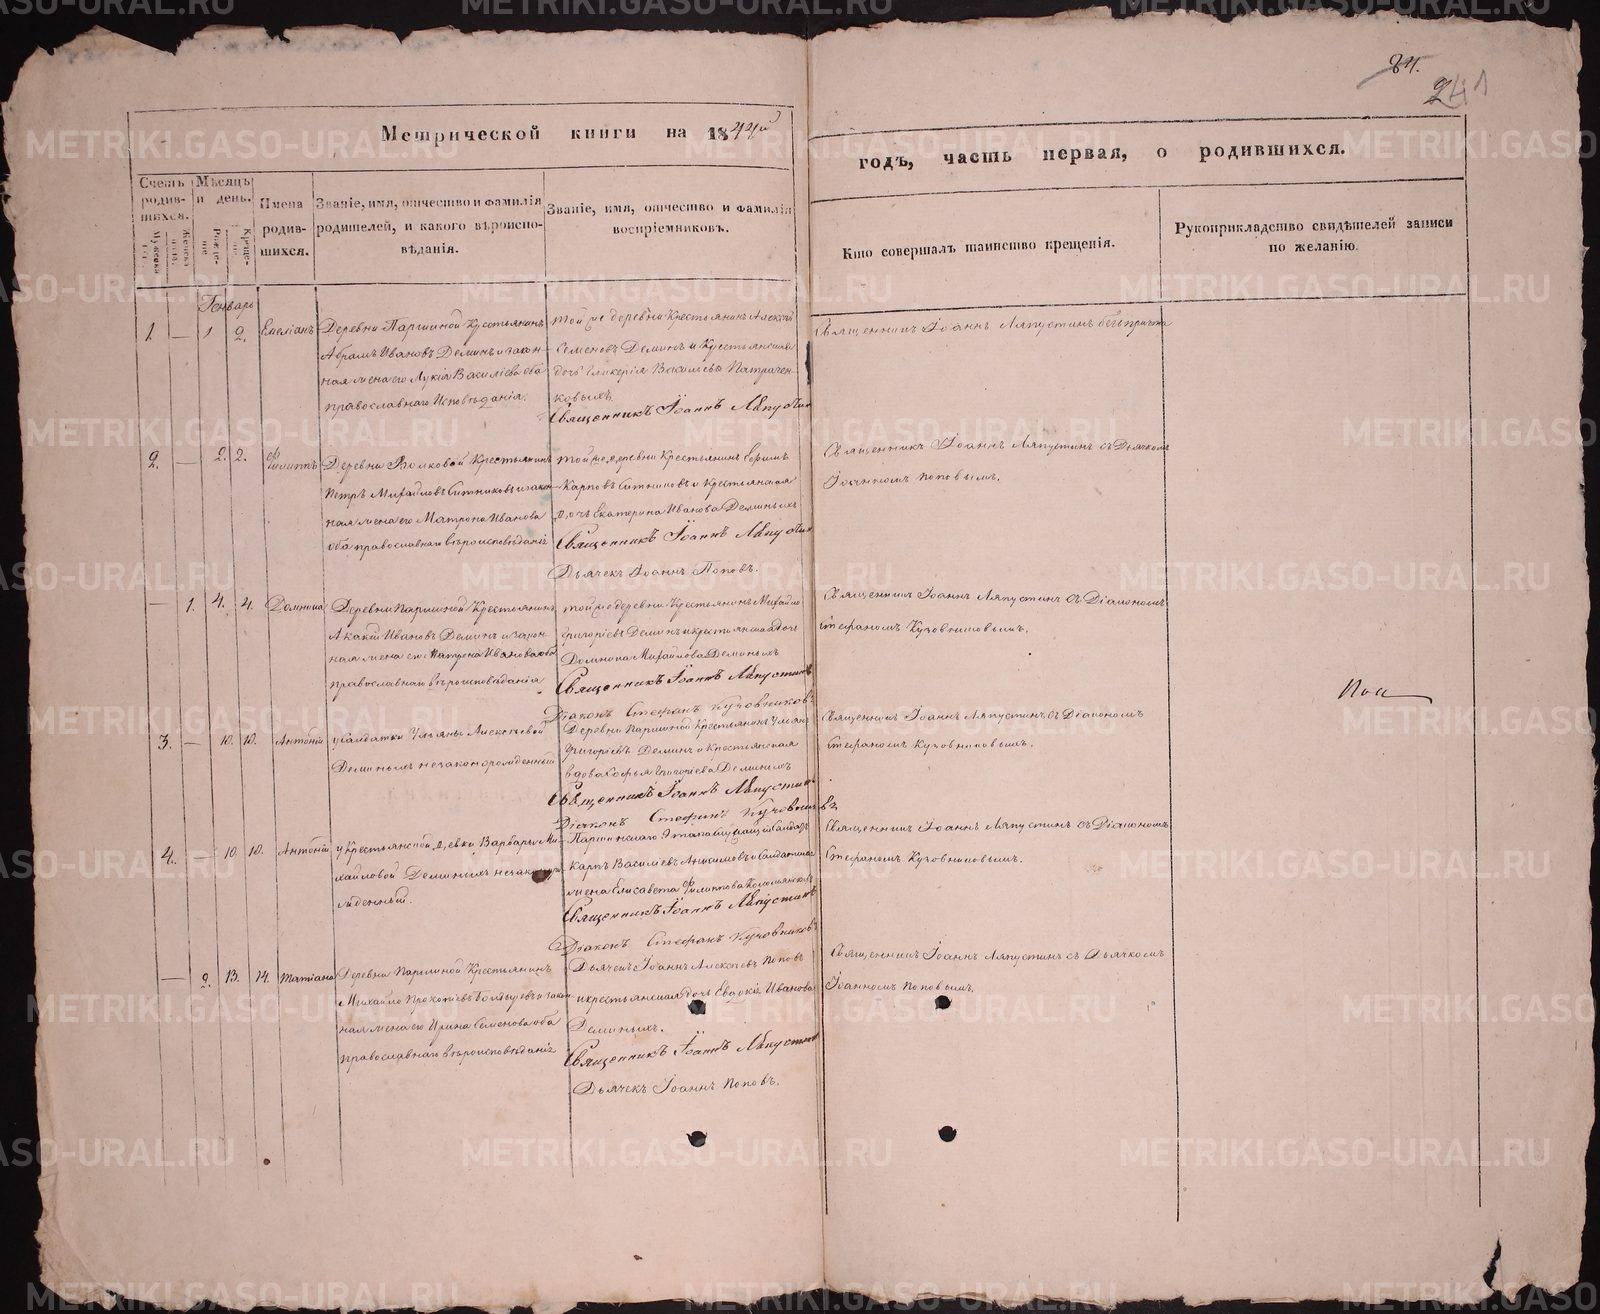 84.
241
Метрической книги на 1844й
годъ, часть первая, о родившихся.
Счетъ родившихся.
Мужеска пола.
Женска пола.
Мѣсяцъ и день.
Рожденіе
Крещеніе
Имена родившихся.
Званіе, имя, отчество и фамилія
родителей, и какого вѣроиспо-
вѣданія.
Званіе, имя, отчество и фамилія
воспріемниковъ.
Кто совершалъ таинство крещенія.
Рукоприкладство свидѣтелей записи
по желанію.
Генварь
1. — 1 2. Емеліанъ
Деревни Паршиной Крестьянинъ
Абрамъ Ивановъ Деминъ и закон-
ная жена его Лукія Васильева оба
православнаго Исповѣданія.
Той же деревни Крестьянинъ Алексѣй
Семеновъ Деминъ и Крестьянская
дочь Гликерія Васильева Патрачен-
ковыхъ
Священникъ Іоаннъ Ляпустин
Священникъ Іоаннъ Ляпустинъ безъ причта
2. — 2. 2. Филиппъ
Деревни Волковой Крестьянинъ
Петръ Михайловъ Ситниковъ и закон-
ная жена его Матрона Иванова
оба православнаго вѣроисповѣданія
Той же деревни Крестьянинъ Ефимъ
Карповъ Ситниковъ и Крестьянская
дочь Екатерина Иванова Деминыхъ
Священникъ Іоаннъ Ляпустин
Дьячекъ Іоаннъ Поповъ.
Священникъ Іоаннъ Ляпустинъ съ Дьячкомъ
Іоанномъ Поповымъ.
— 1. 4. 4. Домника
Деревни Паршиной Крестьянинъ
Акакій Ивановъ Деминъ и закон-
ная жена его Матрона Иванова оба
православнаго вѣроисповѣданія
Той же деревни Крестьянинъ Михайло
Григорьевъ Деминъ и крестьянская дочь
Домника Михайлова Деминыхъ
Священникъ Іоаннъ Ляпустинъ
Діаконъ Стефанъ Кузовниковъ
Священникъ Іоаннъ Ляпустинъ съ Діакономъ
Стефаномъ Кузовниковымъ.
3. — 10. 10. Антоній
у Солдатки Ульяны Алексѣевой
Деминыхъ незаконорожденный
Деревни Паршиной Крестьянинъ Ульянъ
Григорьевъ Деминъ и Крестьянская
вдова Софья Григорьева Деминыхъ
Священникъ Іоаннъ Ляпустинъ
Діаконъ Стефанъ Кузовниковъ
Священникъ Іоаннъ Ляпустинъ съ Діакономъ
Стефаномъ Кузовниковымъ.
4. — 10. 10. Антоній
у Крестьянской девки Варвары Ми-
хайловой Деминыхъ незаконоро-
жденный.
Паршинскаго Этапа Служащій Солдатъ
Карпъ Васильевъ Анисимовъ и Солдатская
жена Елисавета Филиппова
Священникъ Іоаннъ Ляпустинъ
Діаконъ Стефанъ Кузовниковъ
Священникъ Іоаннъ Ляпустинъ съ Діакономъ
Стефаномъ Кузовниковымъ.
— 2. 13. 14. Татіана
Деревни Паршиной Крестьянинъ
Михайло Прокопьевъ и закон-
ная жена его Ирина Семенова оба
православнаго вѣроисповѣданія
Дьячекъ Іоаннъ Алексѣевъ Поповъ
и крестьянская дочь Евдокія Иванова
Деминыхъ.
Священникъ Іоаннъ Ляпустинъ
Дьячекъ Іоаннъ Поповъ.
Священникъ Іоаннъ Ляпустинъ съ Дьячкомъ
Іоанномъ Поповымъ.
METRIKI.GASO-URAL.RU